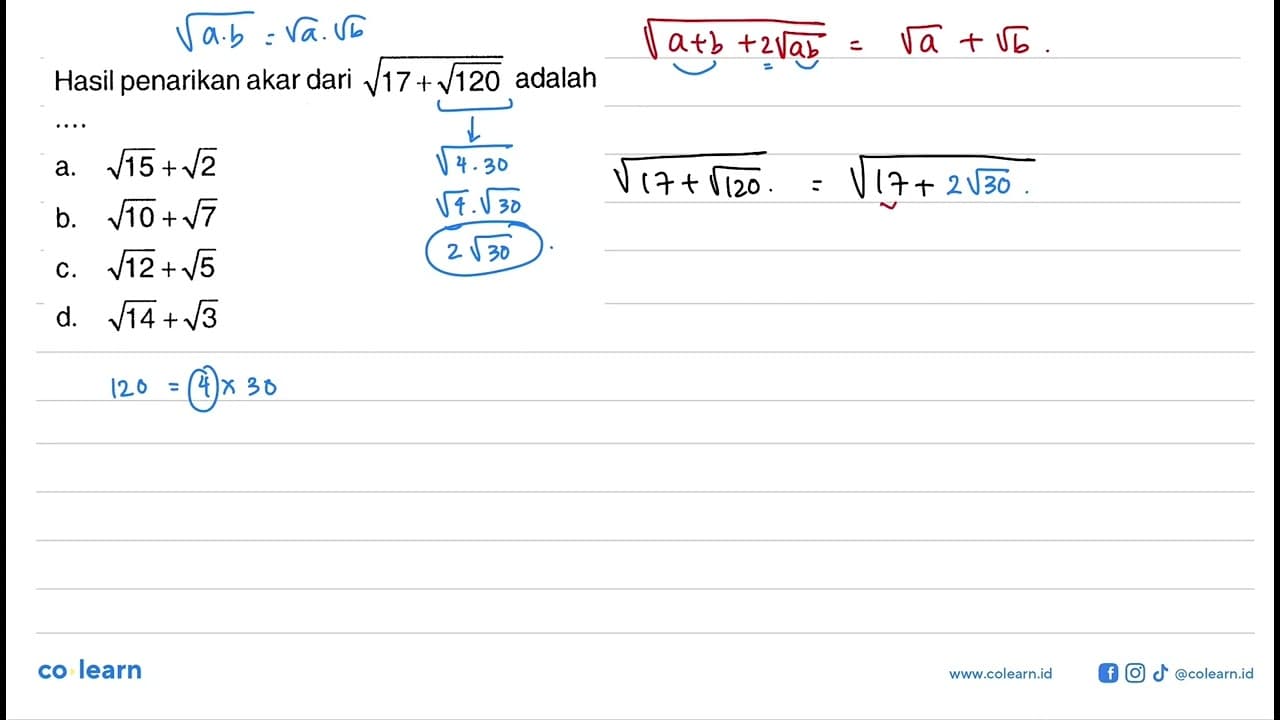 √a.b = √a . √b
√(a+b + 2√ab) = √a + √b .
Hasil penarikan akar dari √(17 + √120) adalah
....
a. √15 + √2
b. √10 + √7
c. √12 + √5
d. √14 + √3
√4 . 30
√4 . √30
2 √30 .
√(17 + √120) . = √(17 + 2√30) .
120 = 4 x 30
co learn
www.colearn.id
@colearn.id